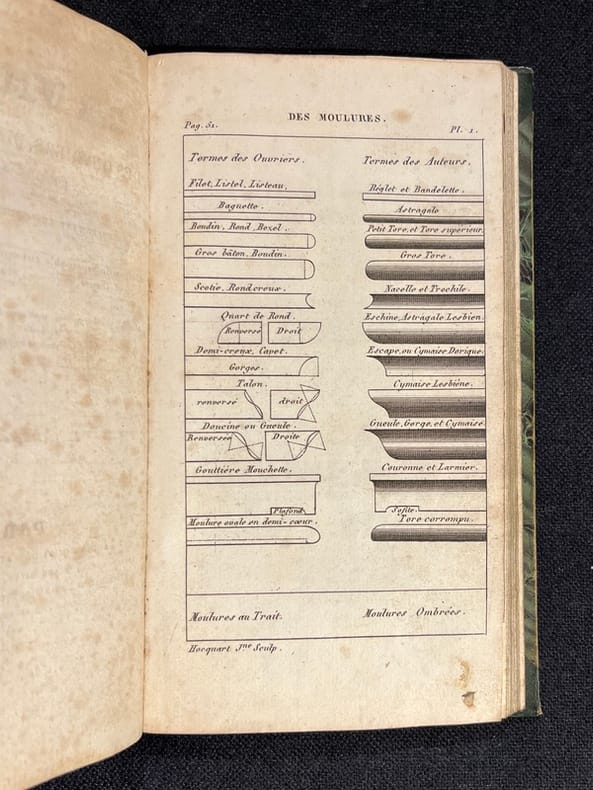 DES MOULURES.
Pag. 51.
Pl. 1.
Termes des Ouvriers.
Filet, Listel, Listeau,
Baguette.
Boudin, Rond, Bozel.
Gros bâton, Boudin.
Scotie, Rond creux.
Quart de Rond.
Renversé
Droit
Demi-creux, Cavet.
Gorges.
Talon.
renversé
droit
Doucine ou Gueule.
Renversée
Droite
Gouttière Mouchette.
Plafond
Moulure ovale en demi-cœur.
Moulures au Trait.
Termes des Auteurs.
Réglet et Bandelette.
Astragale
Petit Tore, et Tore superieur.
Gros Tore.
Nacelle et Trochile.
Eschine, Astragale Lesbien.
Escape, ou Cymaise Dorique.
Cymaise Lesbiène.
Gueule, Gorge, et Cymaise
Couronne et Larmier.
Sofite.
Tore corrompu.
Moulures Ombrées.
Hocquart Jne Sculp.